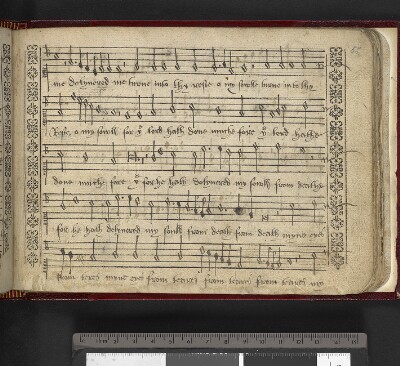 me delivered me turne into thy reste o my soule turne into thy
Reste o my soull for yͤ lord hath done muche fore yͤ lord hathe
done muche fore yͤ for he hath delivered my soull from deathe
for he hath delivered my soull from death from death myne eyes
from teres myne eyes from teares from teares from teares my